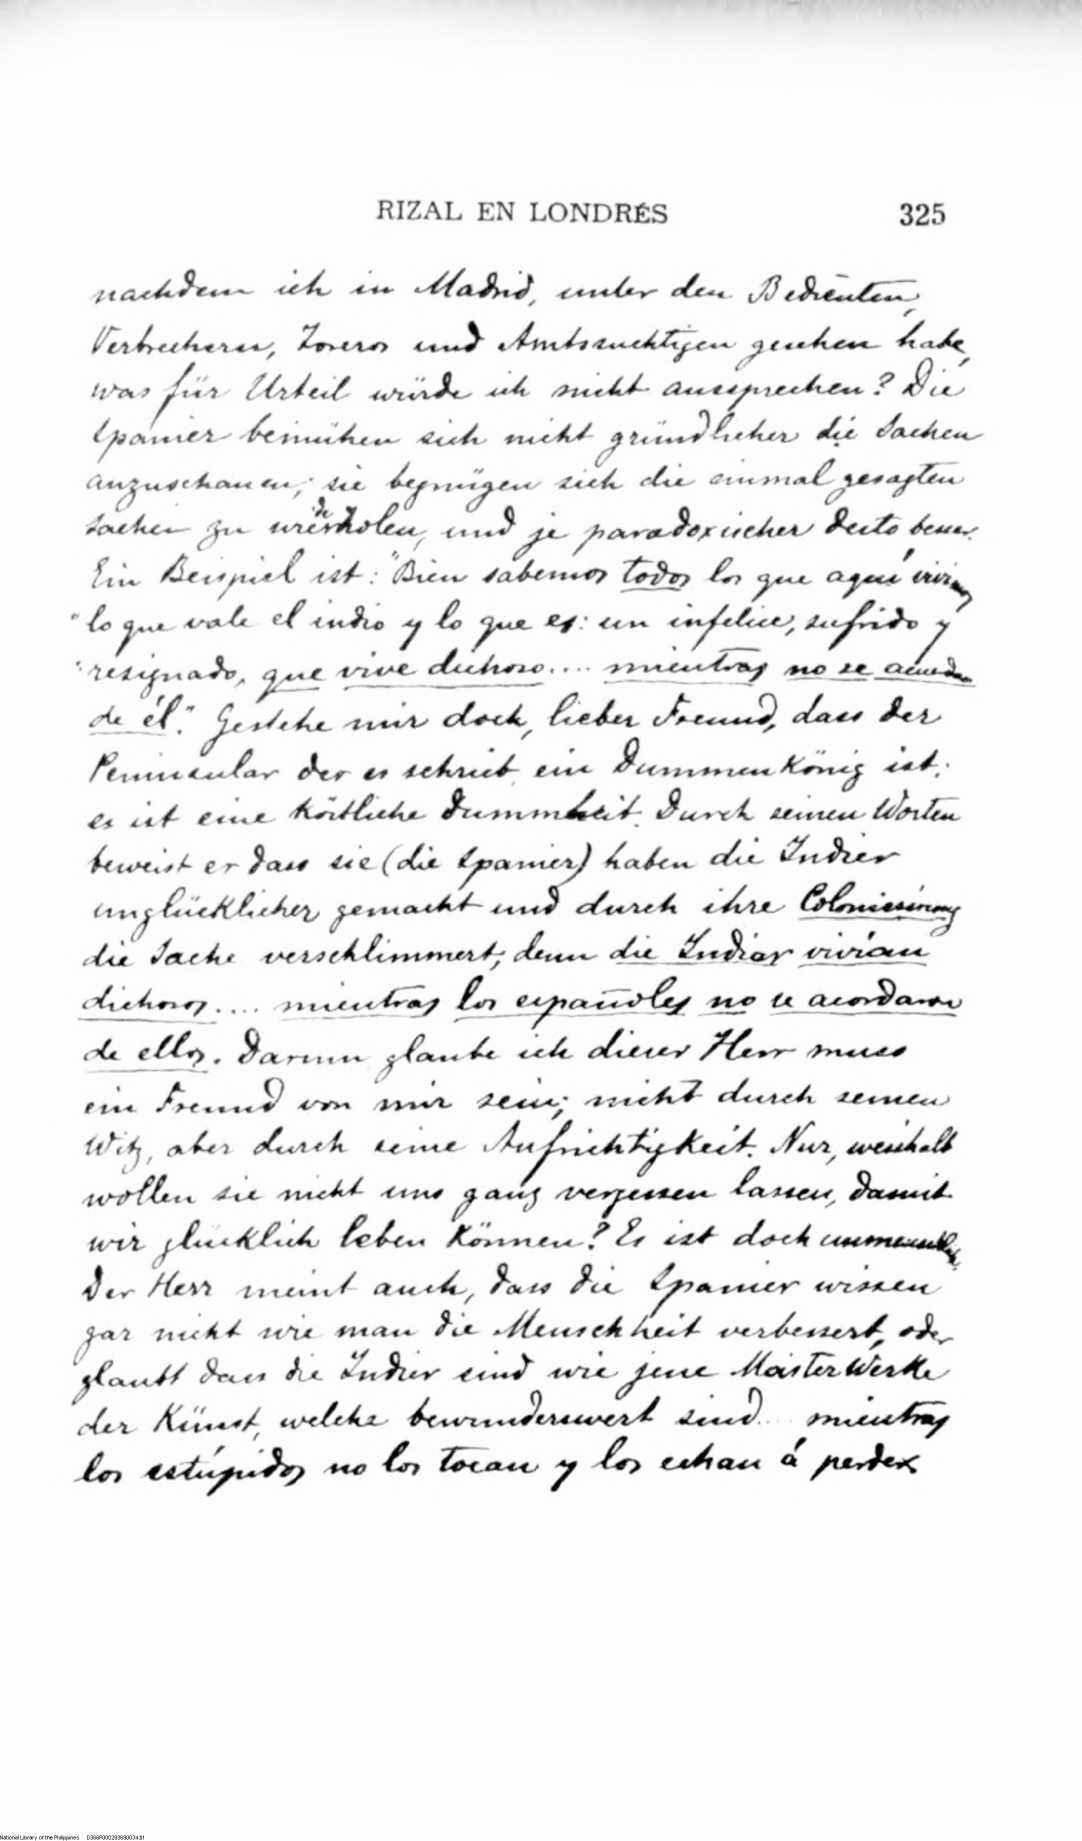 RIZAL EN LONDRÉS 325
nachdem ich in Madrid, unter den Bedienten,
Verbrechern, Toreros und Amtssuchtigen gesehen habe,
was für Urteil würde ich nicht aussprechen? Die
Spanier bemühen sich nicht gründlicher die Sachen
anzuschauen; sie begnügen sich die einmal gesagten
Sachen zu wiederholen, und je paradoxischer desto besser.
Ein Beispiel ist: "Bien sabemos todos los que aquí vivimos
"lo que vale el indio y lo que es: un infelice, sufrido y
"resignado, que vive dichoso.... mientras no se acuerdan
de él." Gestehe mir doch, lieber Freund, dass der
Peninsular der es schrieb ein Dummenkönig ist;
es ist eine köstliche Dummheit. Durch seinen Worten
beweist er dass sie (die Spanier) haben die Indier
unglücklicher gemacht und durch ihre Colonisirung
die Sache verschlimmert; denn die Indier vivían
dichosos.... mientras los españoles no se acordaron
de ellos. Darum glaube ich dieser Herr muss
ein Freund von mir sein; nicht durch seinen
Witz, aber durch seine Aufrichtigkeit. Nur, weshalb
wollen sie nicht uns ganz vergessen lassen, damit
wir glücklich leben können? Es ist doch
Der Herr meint auch, dass die Spanier wissen
gar nicht wie man die Menschheit verbessert, oder
glaubt dass die Indier sind wie jene MeisterWerke
der Künst, welche bewunderswert sind... mientras
los estúpidos no los tocan y los echan á perder
National Library of the Philippines